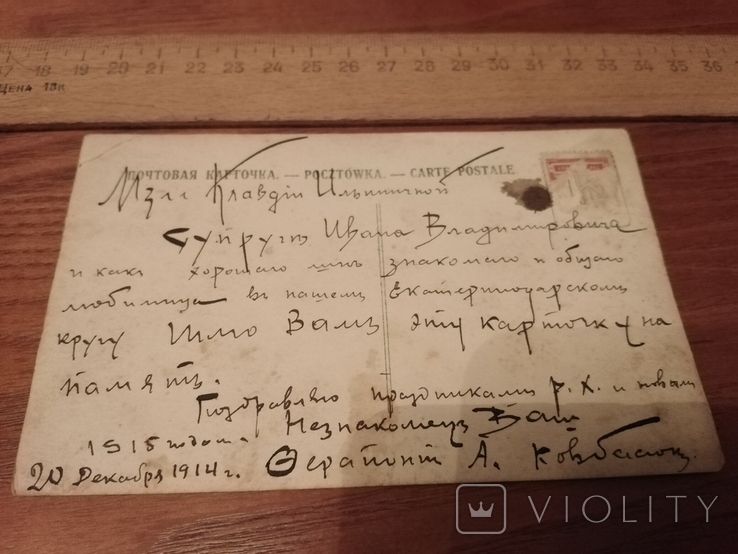 17 18 19 20 21 22 23 24 25 26 27 28 29 30 31 32 33 34 35 36
ЦЕНА 18к
ПОЧТОВАЯ КАРТОЧКА. — POCZTÓWKA. — CARTE POSTALE
Клавдіи Ильиничной
Супругѣ Ивана Владимировича
и какъ хорошаго мнѣ знакомаго и общаго
любимица въ нашемъ Екатеринодарскомъ
кругу Шлю Вамъ эту карточку на
память.
Поздравляю праздниками р. Х. и новым
1915 годом. Незнакомецъ Ваш
20 Декабря 1914 г. Ѳерапонт А.
VIOLITY